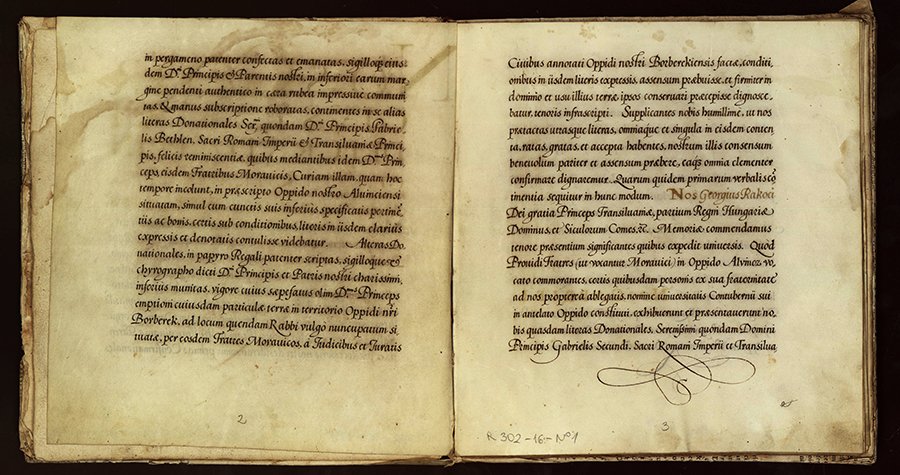 in pergameno patenter confectas et emanatas, sigilloqȝ eius,
dem Dⁿⁱ Principis & Parentis nostri, in inferiori earum mar,
gine pendenti authentico in cæra rubea impressiue communi
tas, & manus subscriptione roboratas, continentes in se alias
literas Donationales Serᵐⁱ quondam Dⁿⁱ Principis, Gabrie,
lis Bethlen, Sacri Romani Imperii & Transiluaniæ Princi,
pis, felicis reminiscentiæ, quibus mediantibus idem Dⁿᵘˢ Prin,
ceps, eisdem Fratribus Morauicis, Curiam illam, quam hoc
tempore incolunt, in præscripto Oppido nostro Aluinciensi
situatam, simul cum cunctis suis inferius specificatis pertinē,
tiis ac bonis, certis sub conditionibus, literis in iisdem clarius
expressis et denotatis contulisse videbatur. Alteras Do,
nationales, in papyro Regali patenter scriptas, sigilloque &
chyrographo dicti Dⁿⁱ Principis et Patris nostri charissimi,
inferius munitas, vigore cuius sæpefatus olim Dⁿᵘˢ Princeps
emptioni cuiusdam particulæ terræ in territorio Oppidi nr̄i
Borberek, ad locum quendam Rabbi vulgo nuncupatum si,
tuatæ, per eosdem Fratres Morauicos, á Iudicibus et Iuratis
2
Ciuibus annotati Oppidi nostri Borberekiensis factæ, conditi,
onibus in iisdem literis expressis, assensum præbuisse, et firmiter in
dominio et usu illius terræ, ipsos conseruari præcepisse dignosce,
batur, tenoris infrascripti. Supplicantes nobis humillimè, ut nos
prætactas utrasque literas, omniaque et singula in eisdem conten
ta, ratas, gratas, et accepta habentes, nostrum illis consensum
beneuolum pariter et assensum præbere, eaqȝ omnia clementer
confirmare dignaremur. Quarum quidem primarum verbalis cō
tinentia sequitur in hunc modum. Nos Georgius Rakoci
Dei gratia Princeps Transiluaniæ, partium Regni Hungariæ
Dominus, et Siculorum Comes, &c. Memoriæ commendamus
tenore præsentium significantes quibus expedit uniuersis. Quod
Prouidi Fratres (ut vocantur Morauici) in Oppido Alvincz vo,
cato commorantes, certis quibusdam personis ex sua fraternitate
ad nos propterea ablegatis, nomine uniuersitatis Contubernii sui
in antelato Oppido constituti, exhibuerunt et præsentauerunt no,
bis quasdam literas Donationales, Serenissimi quondam Domini
Principis Gabrielis Secundi, Sacri Romani Imperii et Transilua
R 302-16.-Nº1
3